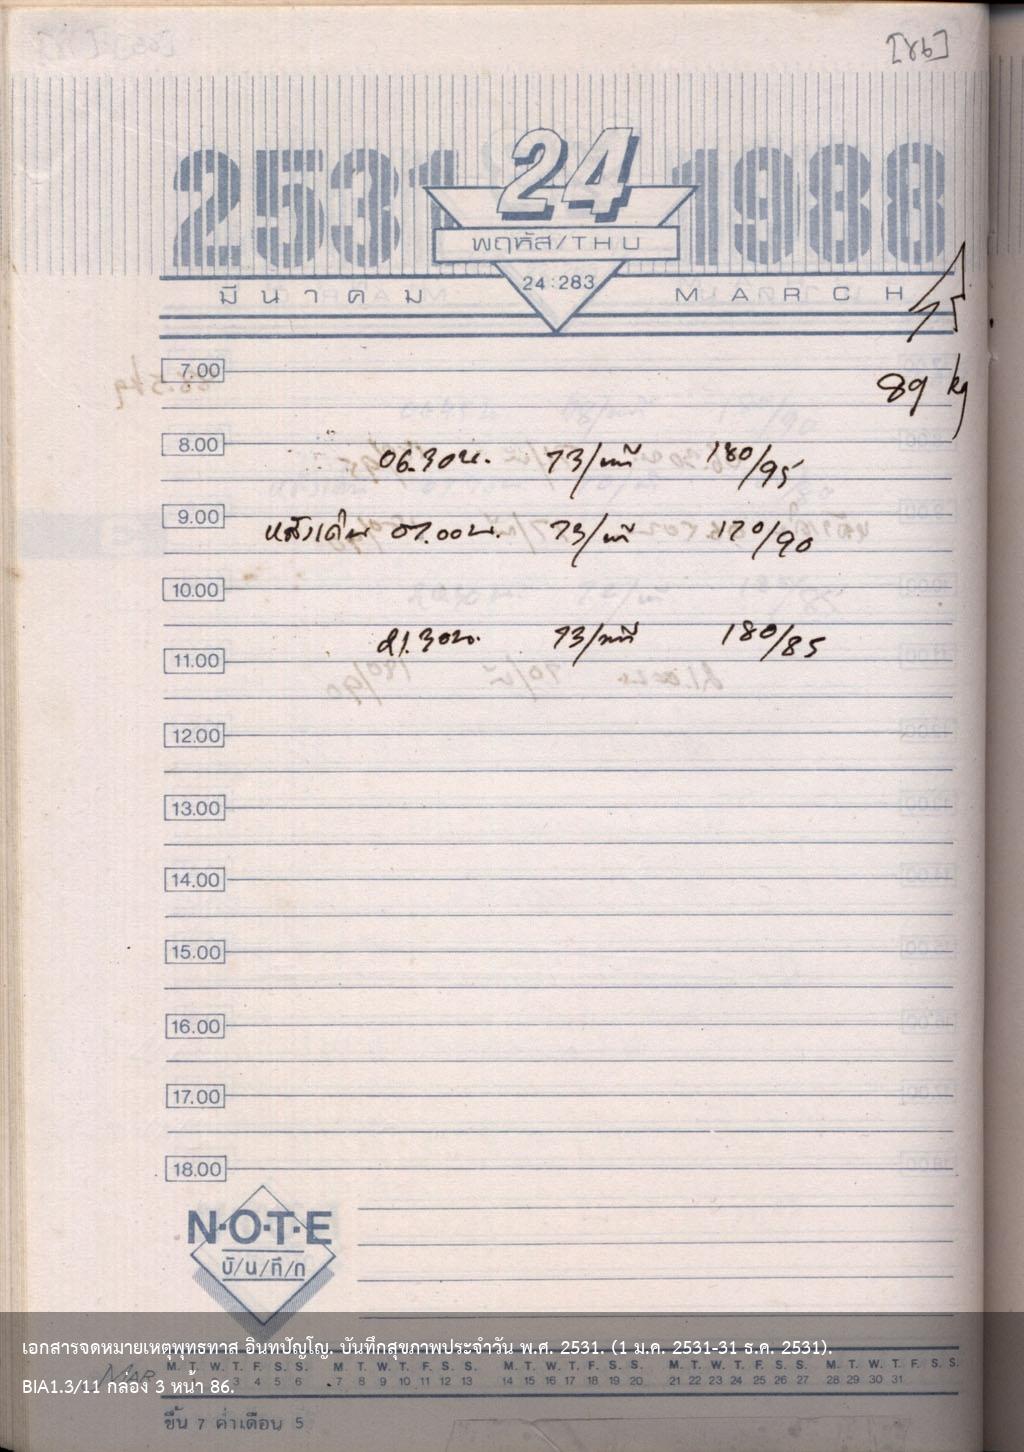 [๘๖]
2531 24 1988
พฤหัส/THU
24:283
มีนาคม MARCH
7.00
89 kg
8.00
06.30น. 73/นาที 180/95
9.00
หลังเดิน 07.00น. 73/นาที 170/90
10.00
21.30น. 73/นาที 180/85
11.00
12.00
13.00
14.00
15.00
16.00
17.00
18.00
N·O·T·E
บั/น/ทึ/ก
เอกสารจดหมายเหตุพุทธทาส อินทปัญโญ. บันทึกสุขภาพประจำวัน พ.ศ. 2531. (1 ม.ค. 2531-31 ธ.ค. 2531).
MAR M. T. W. T. F. S. S. M. T. W. T. F. S. S. M. T. W. T. F. S. S. M. T. W. T. F. S. S. M. T. W. T. F. S. S.
3 4 5 6 7 8 9 10 11 12 13 14 15 16 17 18 19 20 21 22 23 24 25 26 27 28 29 30 31
BIA1.3/11 กล่อง 3 หน้า 86.
ขึ้น 7 ค่ำเดือน 5